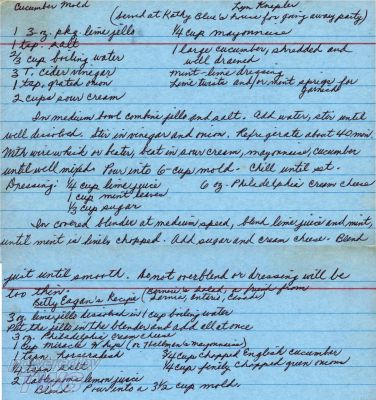 Cucumber Mold Lyn Knepler
(Served at Kathy Blue's house for going away party)
1 3 oz. pkg. lime jello ¼ cup mayonnaise
1 tsp. salt 1 large cucumber, shredded and
⅔ cup boiling water well drained
3 T. cider vinegar Mint-lime dressing
1 tsp. grated onion Lime twists and/or mint sprigs for
2 cups sour cream garnish
In medium bowl combine jello and salt. Add water, stir until
well dissolved. Stir in vinegar and onion. Refrigerate about 40 min.
With wire whisk or beater, beat in sour cream, mayonnaise, cucumber
until well mixed. Pour into 6-cup mold. Chill until set.
Dressing: ¼ cup lime juice 6 oz. Philadelphia Cream Cheese
1 cup mint leaves
⅓ cup sugar
In covered blender at medium speed, blend lime juice and mint,
until mint is finely chopped. Add sugar and cream cheese. Blend
just until smooth. Do not overblend or dressing will be
too thin.
Betty Eagen's Recipe (Bernice's salad, a friend from
Sarnia, Ontario, Canada)
3 oz lime jello dissolved in 1 cup boiling water
Put the jello in the blender and add all at once
3 oz Philadelphia cream cheese
1 cup Miracle Whip (or Hellman's mayonnaise)
1 tspn. horseradish ¾ cup chopped English cucumber
tspn salt ¼ cup finely chopped green onions
2 tablespoons lemon juice
Blend. Pour into a 3½ cup mold.